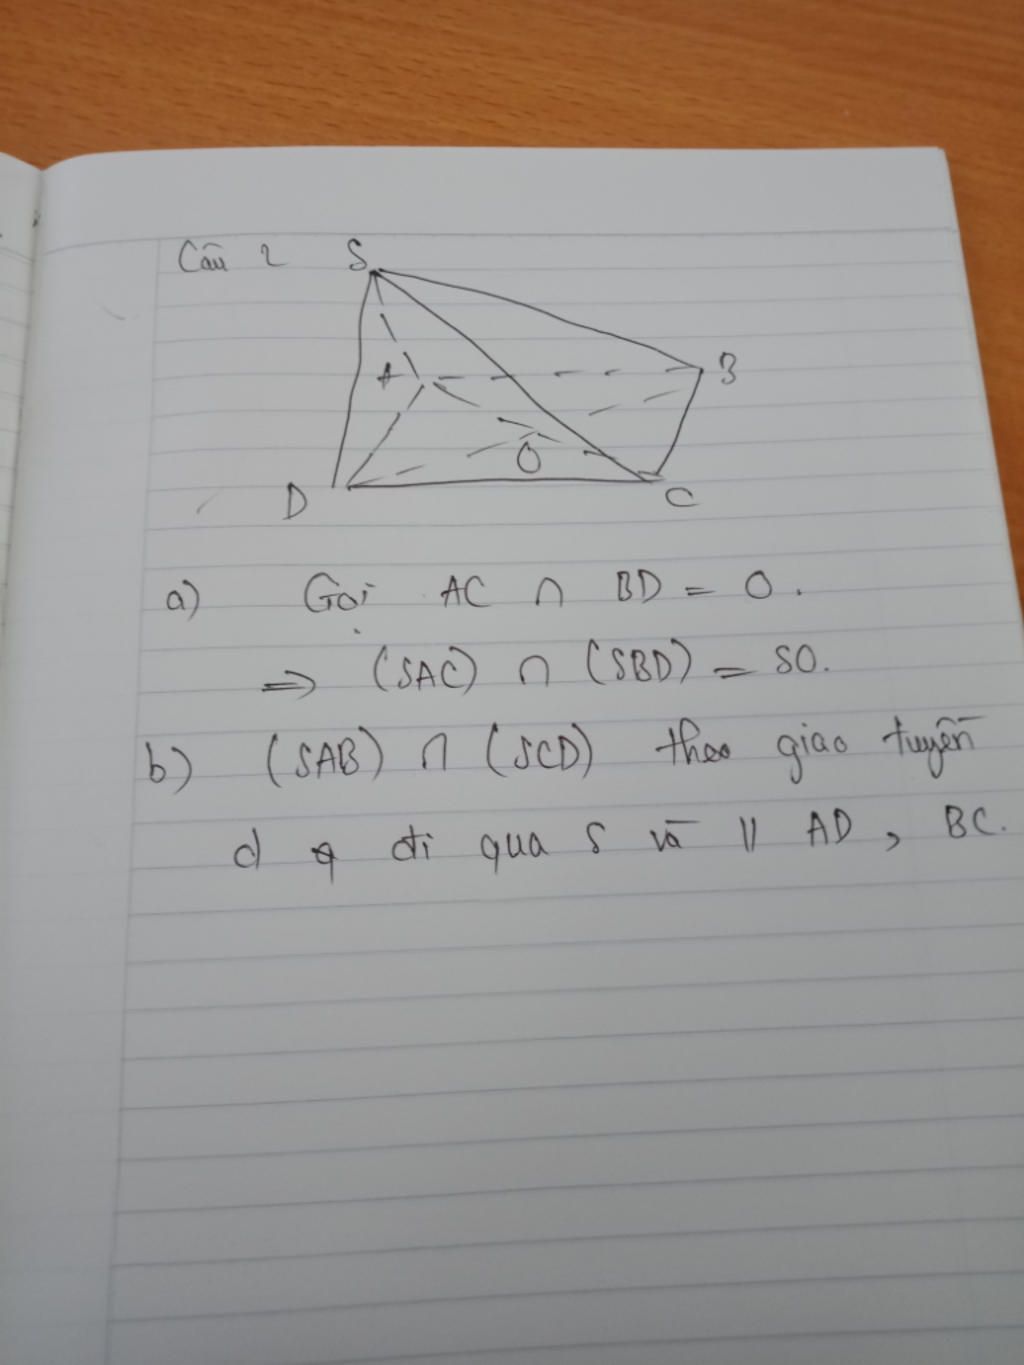 Câu 2
S
A
B
O
D
C
a) Gọi AC ∩ BD = O.
=> (SAC) ∩ (SBD) = SO.
b) (SAB) ∩ (SCD) theo giao tuyến
d đi qua S và // AD, BC.